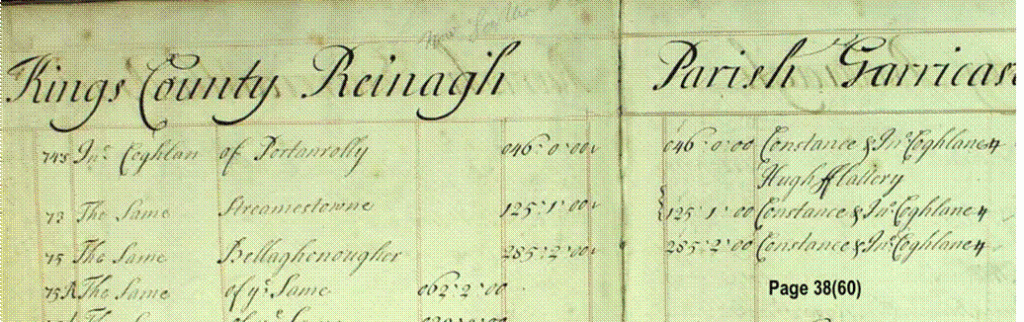 Kings County Reinagh Parish Garricas
74s Jnº Coghlan of Portanrolly 046:0:00 046:0:00 Constance & Jnº Coghlane
Hugh fflattery
73 The Same Streamestowne 125:1:00 125:1:00 Constance & Jnº Coghlane
75 The Same Bellaghenougher 285:2:00 285:2:00 Constance & Jnº Coghlane
75R The Same of yᵉ Same 062:2:00
Page 38(60)